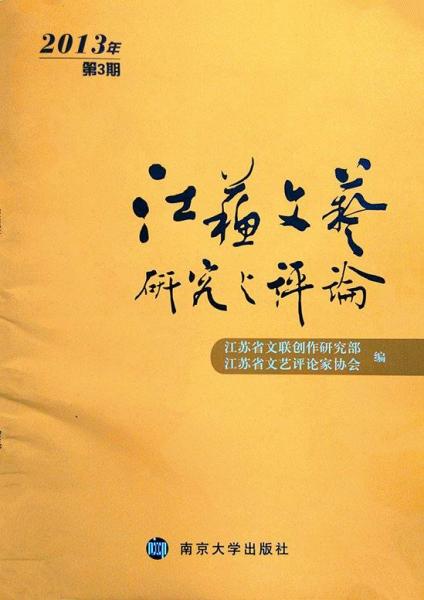 2013年
第3期
江蘇文藝
研究与评論
江苏省文联创作研究部
江苏省文艺评论家协会
编
南京大学出版社